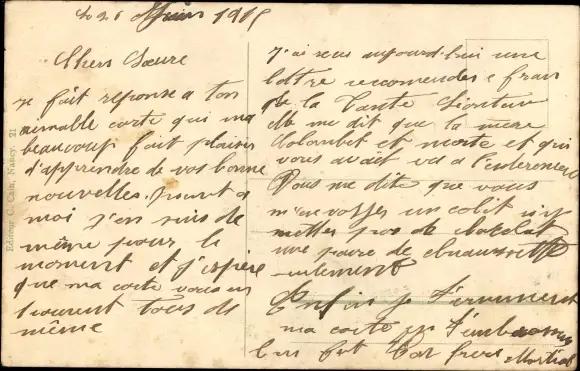 1915
Chers Soeure
je fait reponse a ton
aimable carte qui ma
beaucoup fait plaisir
d'apprendre de vos bonne
nouvelles. pour a
moi j'en suis de
même pour le
moment et j'espère
que ma carte vous en
trouvent tous de
même
J'ai reçu aujourd'hui une
lettre recomendée
de la Tante
Elle me dit que la mère
Colombet et morte et qui
vous avait
Vous me dite que vous
m'envoyer un colit
metter pas de chocolat
une paire de chaussette
seulement
Enfin je
ma carte en
bien fort frère Martial
Nancy. 21